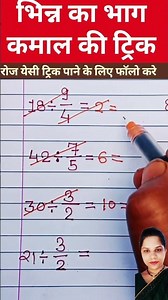 भिन्न का भाग
कमाल की ट्रिक
रोज येसी ट्रिक पाने के लिए फॉलो करे
18 ÷ 9/4 = 2 =
42 ÷ 7/5 = 6 =
30 ÷ 3/2 = 10 =
21 ÷ 3/2 =